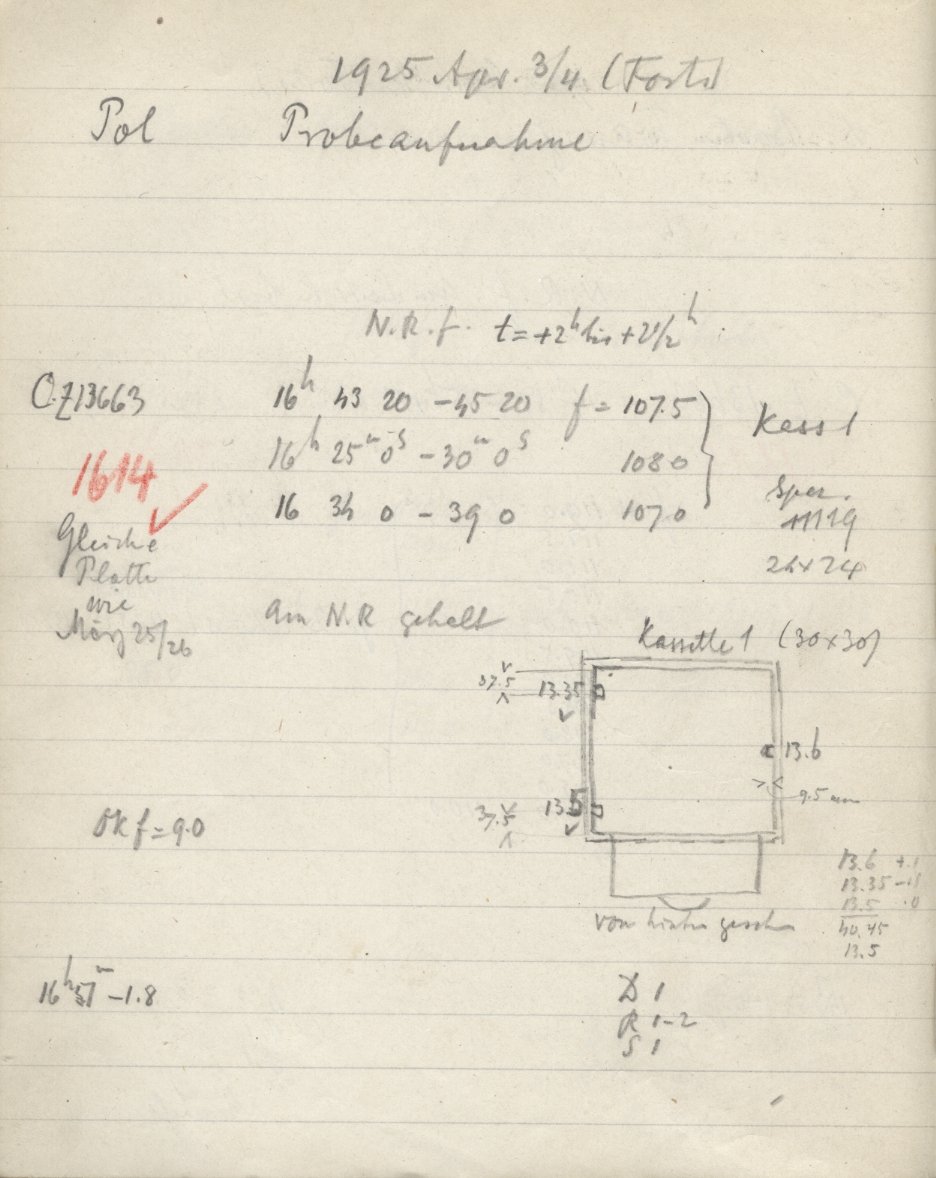 1925 Apr. 3/4 (Forts)
Pol Probeaufnahme
N.R.f. t=+2h bis +2 1/2h
O.Z13663 16h 43 20 - 45 20 f = 107.5
16h 25m 0s - 30m 0s 108.0
16 34 0 - 39 0 107.0
Kass 1
1614
Sper.
1119
24x24
Gleiche
Platte
wie
März 25/26
Am N.R gehalt
Kassette 1 (30x30)
37.5 13.35
13.6
9.5 mm
37.5 13.5
Ok f = 9.0
13.6 +.1
13.35 -.1
13.5 .0
40.45
13.5
von hinten gesehen
16h 57m -1.8
D 1
R 1-2
S 1